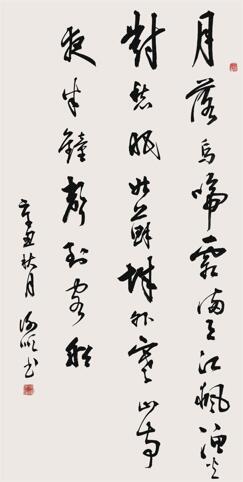 月落烏啼霜满天江楓渔火
對愁眠姑蘇城外寒山寺
夜半鐘聲到客船
辛丑秋月书